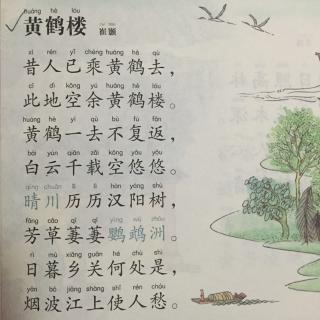 huáng hè lóu
黄鹤楼
崔颢
xī rén yǐ chéng huáng hè qù
昔人已乘黄鹤去，
cǐ dì kōng yú huáng hè lóu
此地空余黄鹤楼。
huáng hè yí qù bù fù fǎn
黄鹤一去不复返，
bái yún qiān zǎi kōng yōu yōu
白云千载空悠悠。
qíng chuān lì lì hàn yáng shù
晴川历历汉阳树，
fāng cǎo qī qī yīng wǔ zhōu
芳草萋萋鹦鹉洲。
rì mù xiāng guān hé chù shì
日暮乡关何处是，
yān bō jiāng shàng shǐ rén chóu
烟波江上使人愁。